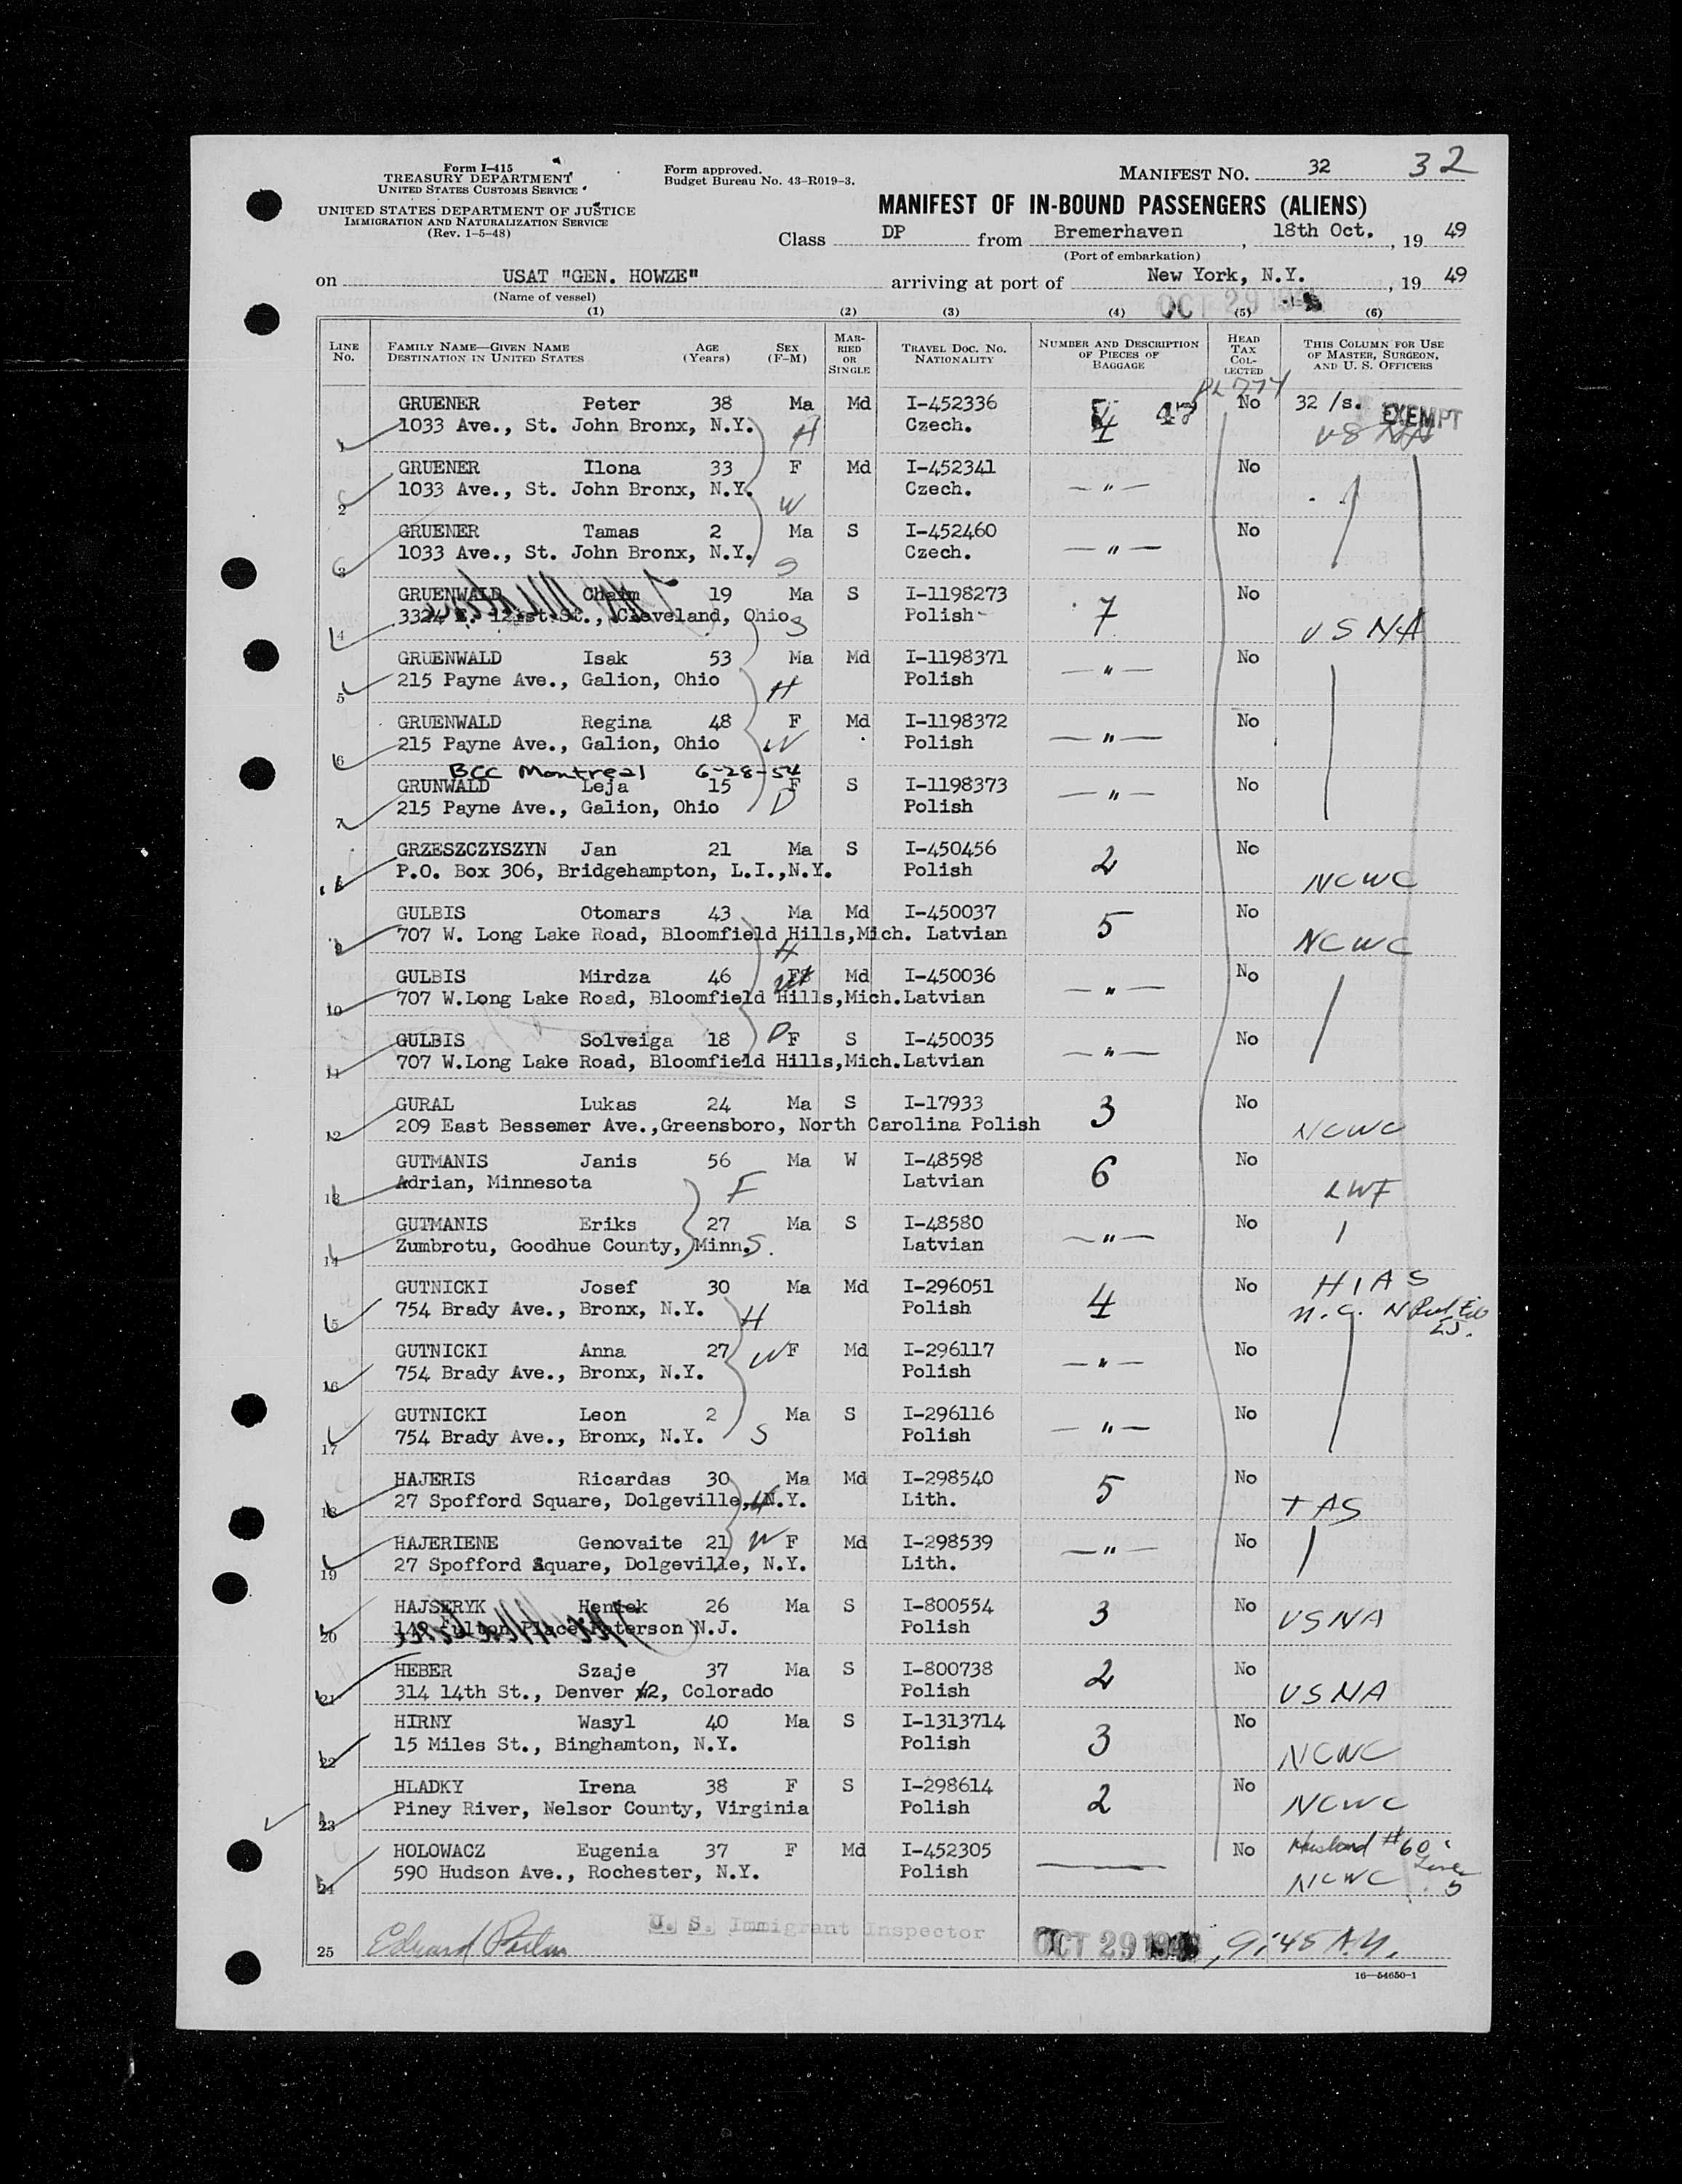 Form I-415
TREASURY DEPARTMENT
UNITED STATES CUSTOMS SERVICE
UNITED STATES DEPARTMENT OF JUSTICE
IMMIGRATION AND NATURALIZATION SERVICE
(Rev. 1-5-48)
Form approved.
Budget Bureau No. 43-R019-3.
MANIFEST NO. 32 32
MANIFEST OF IN-BOUND PASSENGERS (ALIENS)
Class DP from Bremerhaven, 18th Oct., 19 49
(Port of embarkation)
on USAT "GEN. HOWZE" arriving at port of New York, N.Y., 19 49
(Name of vessel)
OCT 29
(1) (2) (3) (4) (5) (6)
LINE No. FAMILY NAME—GIVEN NAME DESTINATION IN UNITED STATES AGE (Years) SEX (F-M) MARRIED OR SINGLE TRAVEL DOC. NO. NATIONALITY NUMBER AND DESCRIPTION OF PIECES OF BAGGAGE HEAD TAX COLLECTED THIS COLUMN FOR USE OF MASTER, SURGEON, AND U. S. OFFICERS
PL 774
GRUENER Peter 38 Ma Md I-452336 47 No 32 /s. EXEMPT
1 1033 Ave., St. John Bronx, N.Y. H Czech. 4 USNA
GRUENER Ilona 33 F Md I-452341 No
2 1033 Ave., St. John Bronx, N.Y. W Czech. — " —
GRUENER Tamas 2 Ma S I-452460 No
3 1033 Ave., St. John Bronx, N.Y. S Czech. — " —
GRUENWALD Chaim 19 Ma S I-1198273 No
4 3324 E. 121st St., Cleveland, Ohio S Polish 7 USNA
GRUENWALD Isak 53 Ma Md I-1198371 No
5 215 Payne Ave., Galion, Ohio H Polish — " —
GRUENWALD Regina 48 F Md I-1198372 No
6 215 Payne Ave., Galion, Ohio W Polish — " —
BCC Montreal 6-28-54
GRUNWALD Leja 15 F S I-1198373 No
7 215 Payne Ave., Galion, Ohio D Polish — " —
GRZESZCZYSZYN Jan 21 Ma S I-450456 2 No
8 P.O. Box 306, Bridgehampton, L.I.,N.Y. Polish NCWC
GULBIS Otomars 43 Ma Md I-450037 5 No
9 707 W. Long Lake Road, Bloomfield Hills,Mich. Latvian NCWC
H
GULBIS Mirdza 46 F Md I-450036 No
10 707 W.Long Lake Road, Bloomfield Hills,Mich.Latvian — " —
GULBIS Solveiga 18 D F S I-450035 No
11 707 W.Long Lake Road, Bloomfield Hills,Mich.Latvian — " —
GURAL Lukas 24 Ma S I-17933 3 No
12 209 East Bessemer Ave.,Greensboro, North Carolina Polish NCWC
GUTMANIS Janis 56 Ma W I-48598 6 No
13 Adrian, Minnesota F Latvian LWF
GUTMANIS Eriks 27 Ma S I-48580 No
14 Zumbrotu, Goodhue County, Minn. S. Latvian — " —
GUTNICKI Josef 30 Ma Md I-296051 4 No HIAS
15 754 Brady Ave., Bronx, N.Y. H Polish
GUTNICKI Anna 27 W F Md I-296117 No
16 754 Brady Ave., Bronx, N.Y. Polish — " —
GUTNICKI Leon 2 Ma S I-296116 No
17 754 Brady Ave., Bronx, N.Y. S Polish — " —
HAJERIS Ricardas 30 Ma Md I-298540 5 No
18 27 Spofford Square, Dolgeville, N.Y. H Lith. TAS
HAJERIENE Genovaite 21 W F Md I-298539 No
19 27 Spofford Square, Dolgeville, N.Y. Lith. — " —
HAJSERYK Heniek 26 Ma S I-800554 3 No
20 149 Fulton Place Paterson N.J. Polish USNA
HEBER Szaje 37 Ma S I-800738 2 No
21 314 14th St., Denver #2, Colorado Polish USNA
HIRNY Wasyl 40 Ma S I-1313714 No
22 15 Miles St., Binghamton, N.Y. Polish 3 NCWC
HLADKY Irena 38 F S I-298614 No
23 Piney River, Nelsor County, Virginia Polish 2 NCWC
HOLOWACZ Eugenia 37 F Md I-452305 No Husband #60 Line 5
24 590 Hudson Ave., Rochester, N.Y. Polish NCWC
U. S. Immigrant Inspector
25 OCT 29, 9:45 A.M.
16—54650-1